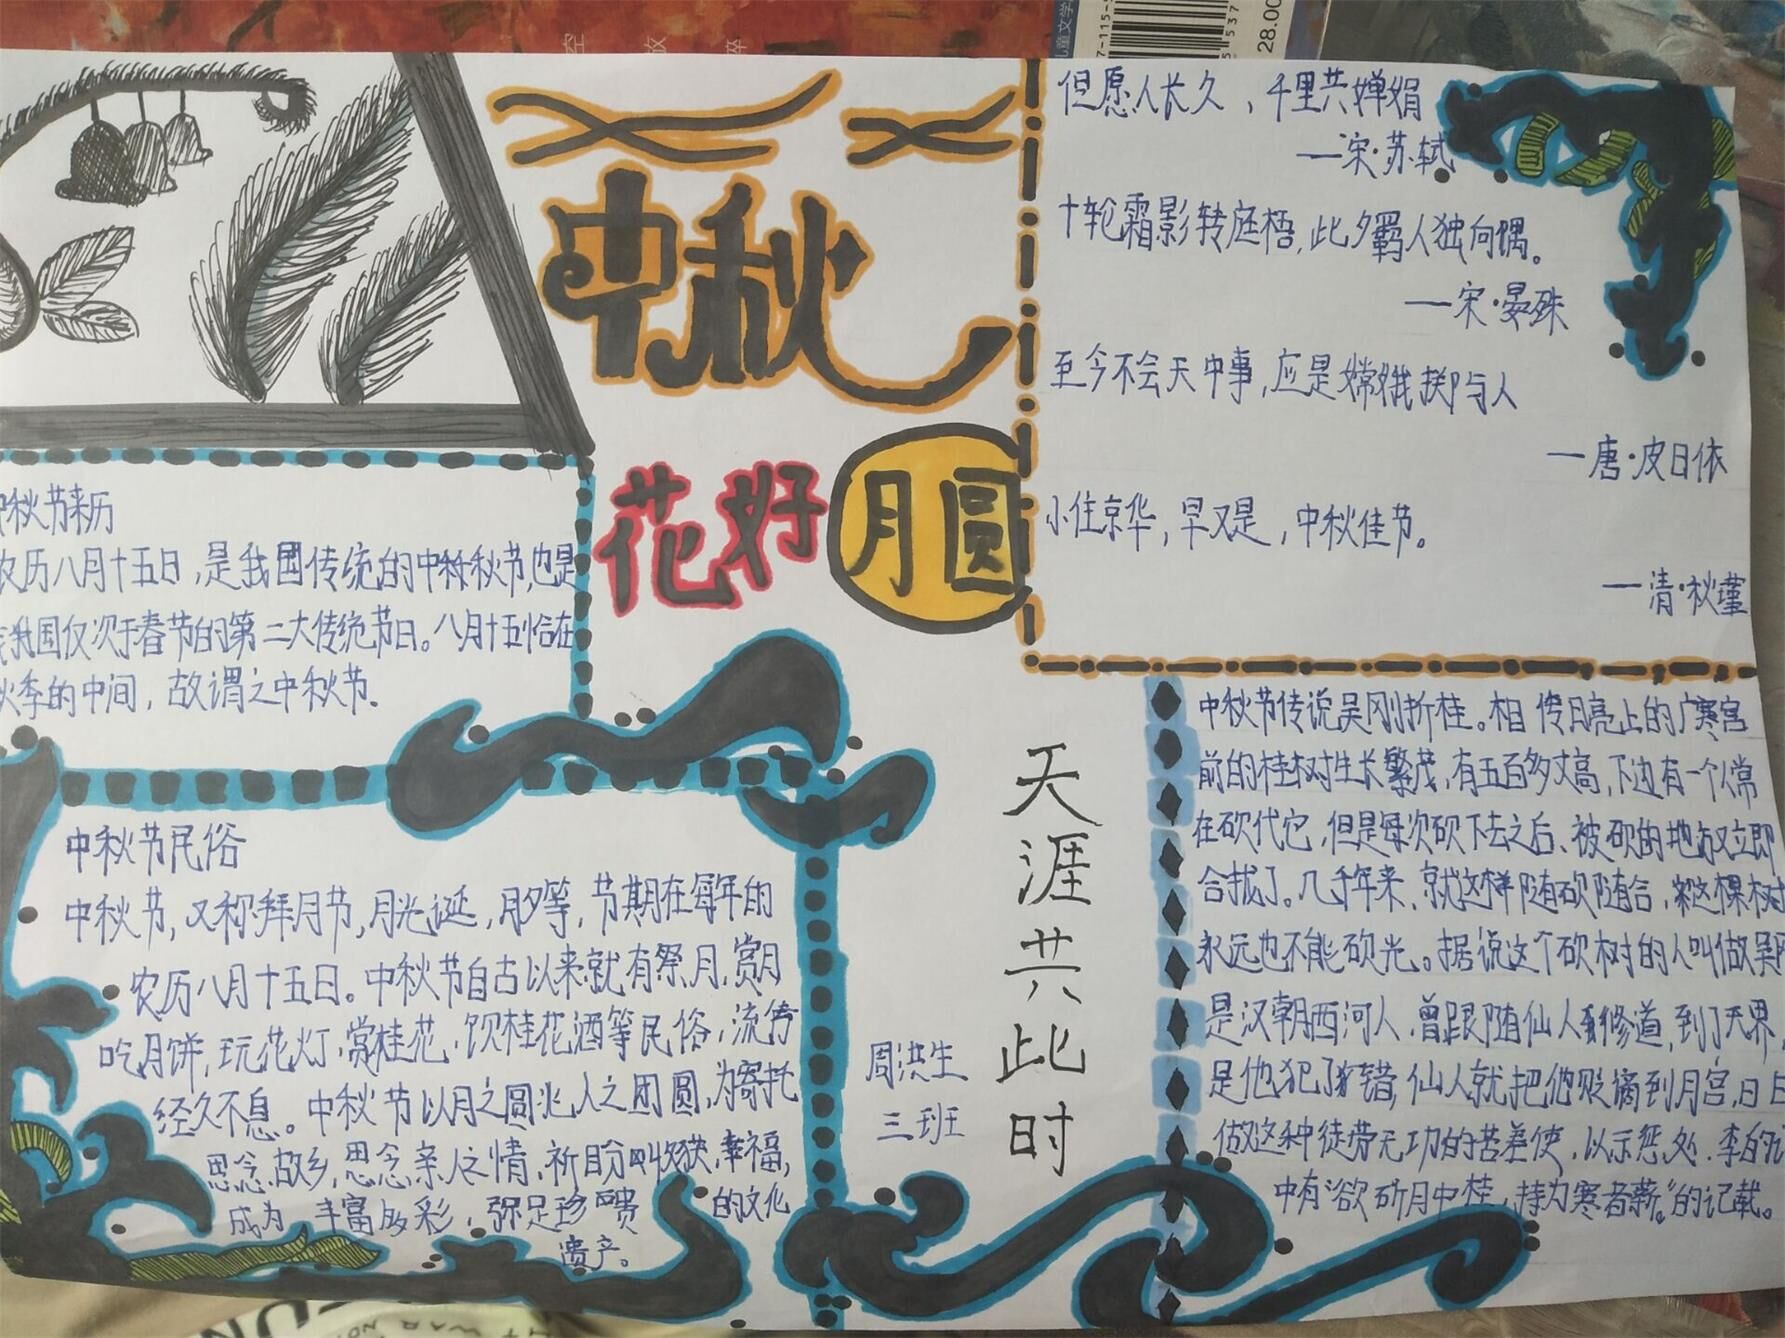 空
放
释
儿童文学
28.00
中秋
花好
月圆
但愿人长久，千里共婵娟
—宋·苏轼
十轮霜影转庭梧，此夕羁人独向隅。
—宋·晏殊
至今不会天中事，应是嫦娥掷与人
—唐·皮日休
小住京华，早又是，中秋佳节。
—清·秋瑾
中秋节来历
农历八月十五日，是我国传统的中秋节，也是
我国仅次于春节的第二大传统节日。八月十五恰在
秋季的中间，故谓之中秋节.
中秋节民俗
中秋节，又称拜月节，月光诞，月夕等，节期在每年的
农历八月十五日。中秋节自古以来就有祭月，赏月
吃月饼，玩花灯，赏桂花，饮桂花酒等民俗，流传
经久不息。中秋节以月之圆兆人之团圆，为寄托
思念故乡，思念亲人之情，祈盼收获，幸福，
成为丰富多彩，弥足珍贵的文化
遗产。
天涯共此时
周洪生
三班
中秋节传说吴刚折桂。相传月亮上的广寒宫
前的桂树生长繁茂，有五百多丈高，下边有一个人常
在砍伐它，但是每次砍下去之后、被砍的地方又立即
合拢了。几千年来，就这样随砍随合，这棵树
永远也不能砍光。据说这个砍树的人叫做吴
是汉朝西河人，曾跟随仙人修道，到了天界，
是他犯了错，仙人就把他贬谪到月宫，日日
做这种徒劳无功的苦差使，以示惩处.李白的
中有“欲斫月中桂，持为寒者薪。”的记载。